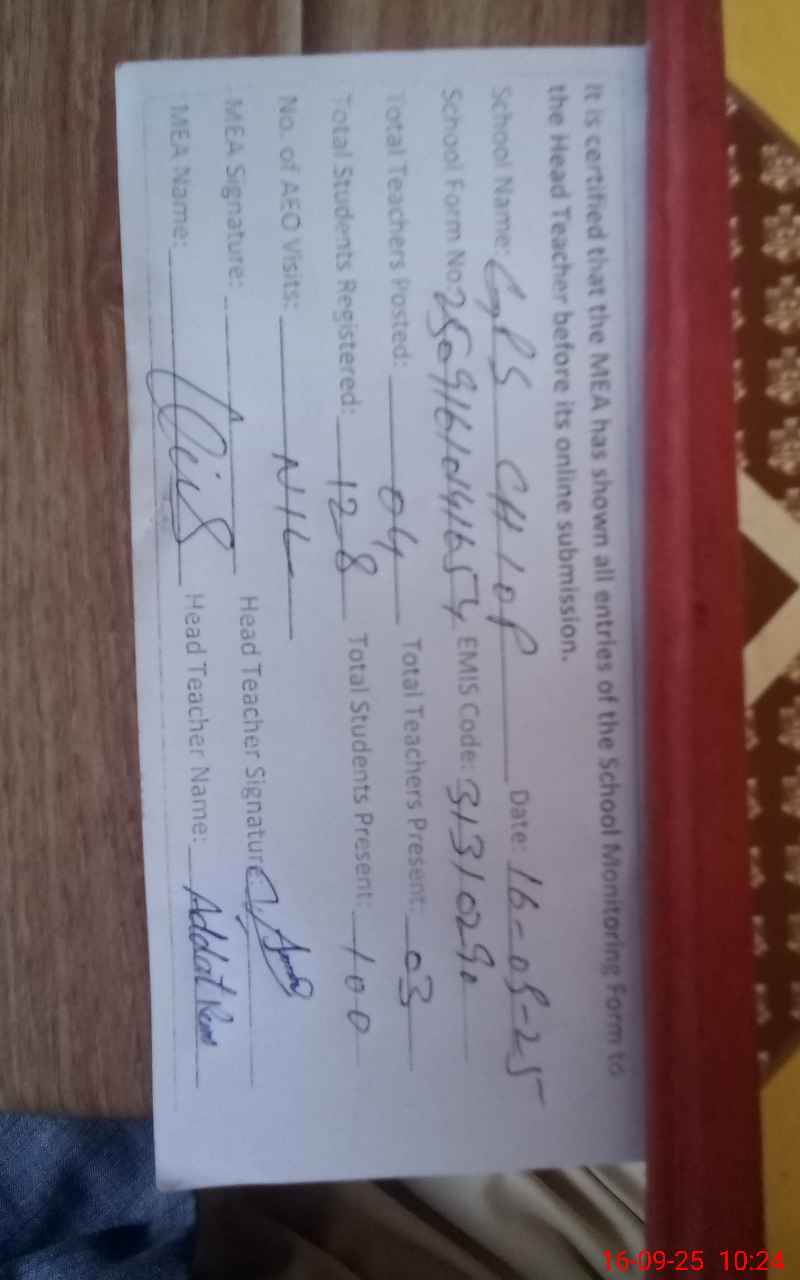 It is certified that the MEA has shown all entries of the School Monitoring Form to
the Head Teacher before its online submission.
School Name: GPS CH 10P Date: 16-09-25
School Form No: EMIS Code: 31310290
Total Teachers Posted: 04 Total Teachers Present: 03
Total Students Registered: 128 Total Students Present: 100
No. of AEO Visits: NIL
MEA Signature: Head Teacher Signature:
MEA Name: Head Teacher Name:
16-09-25 10:24